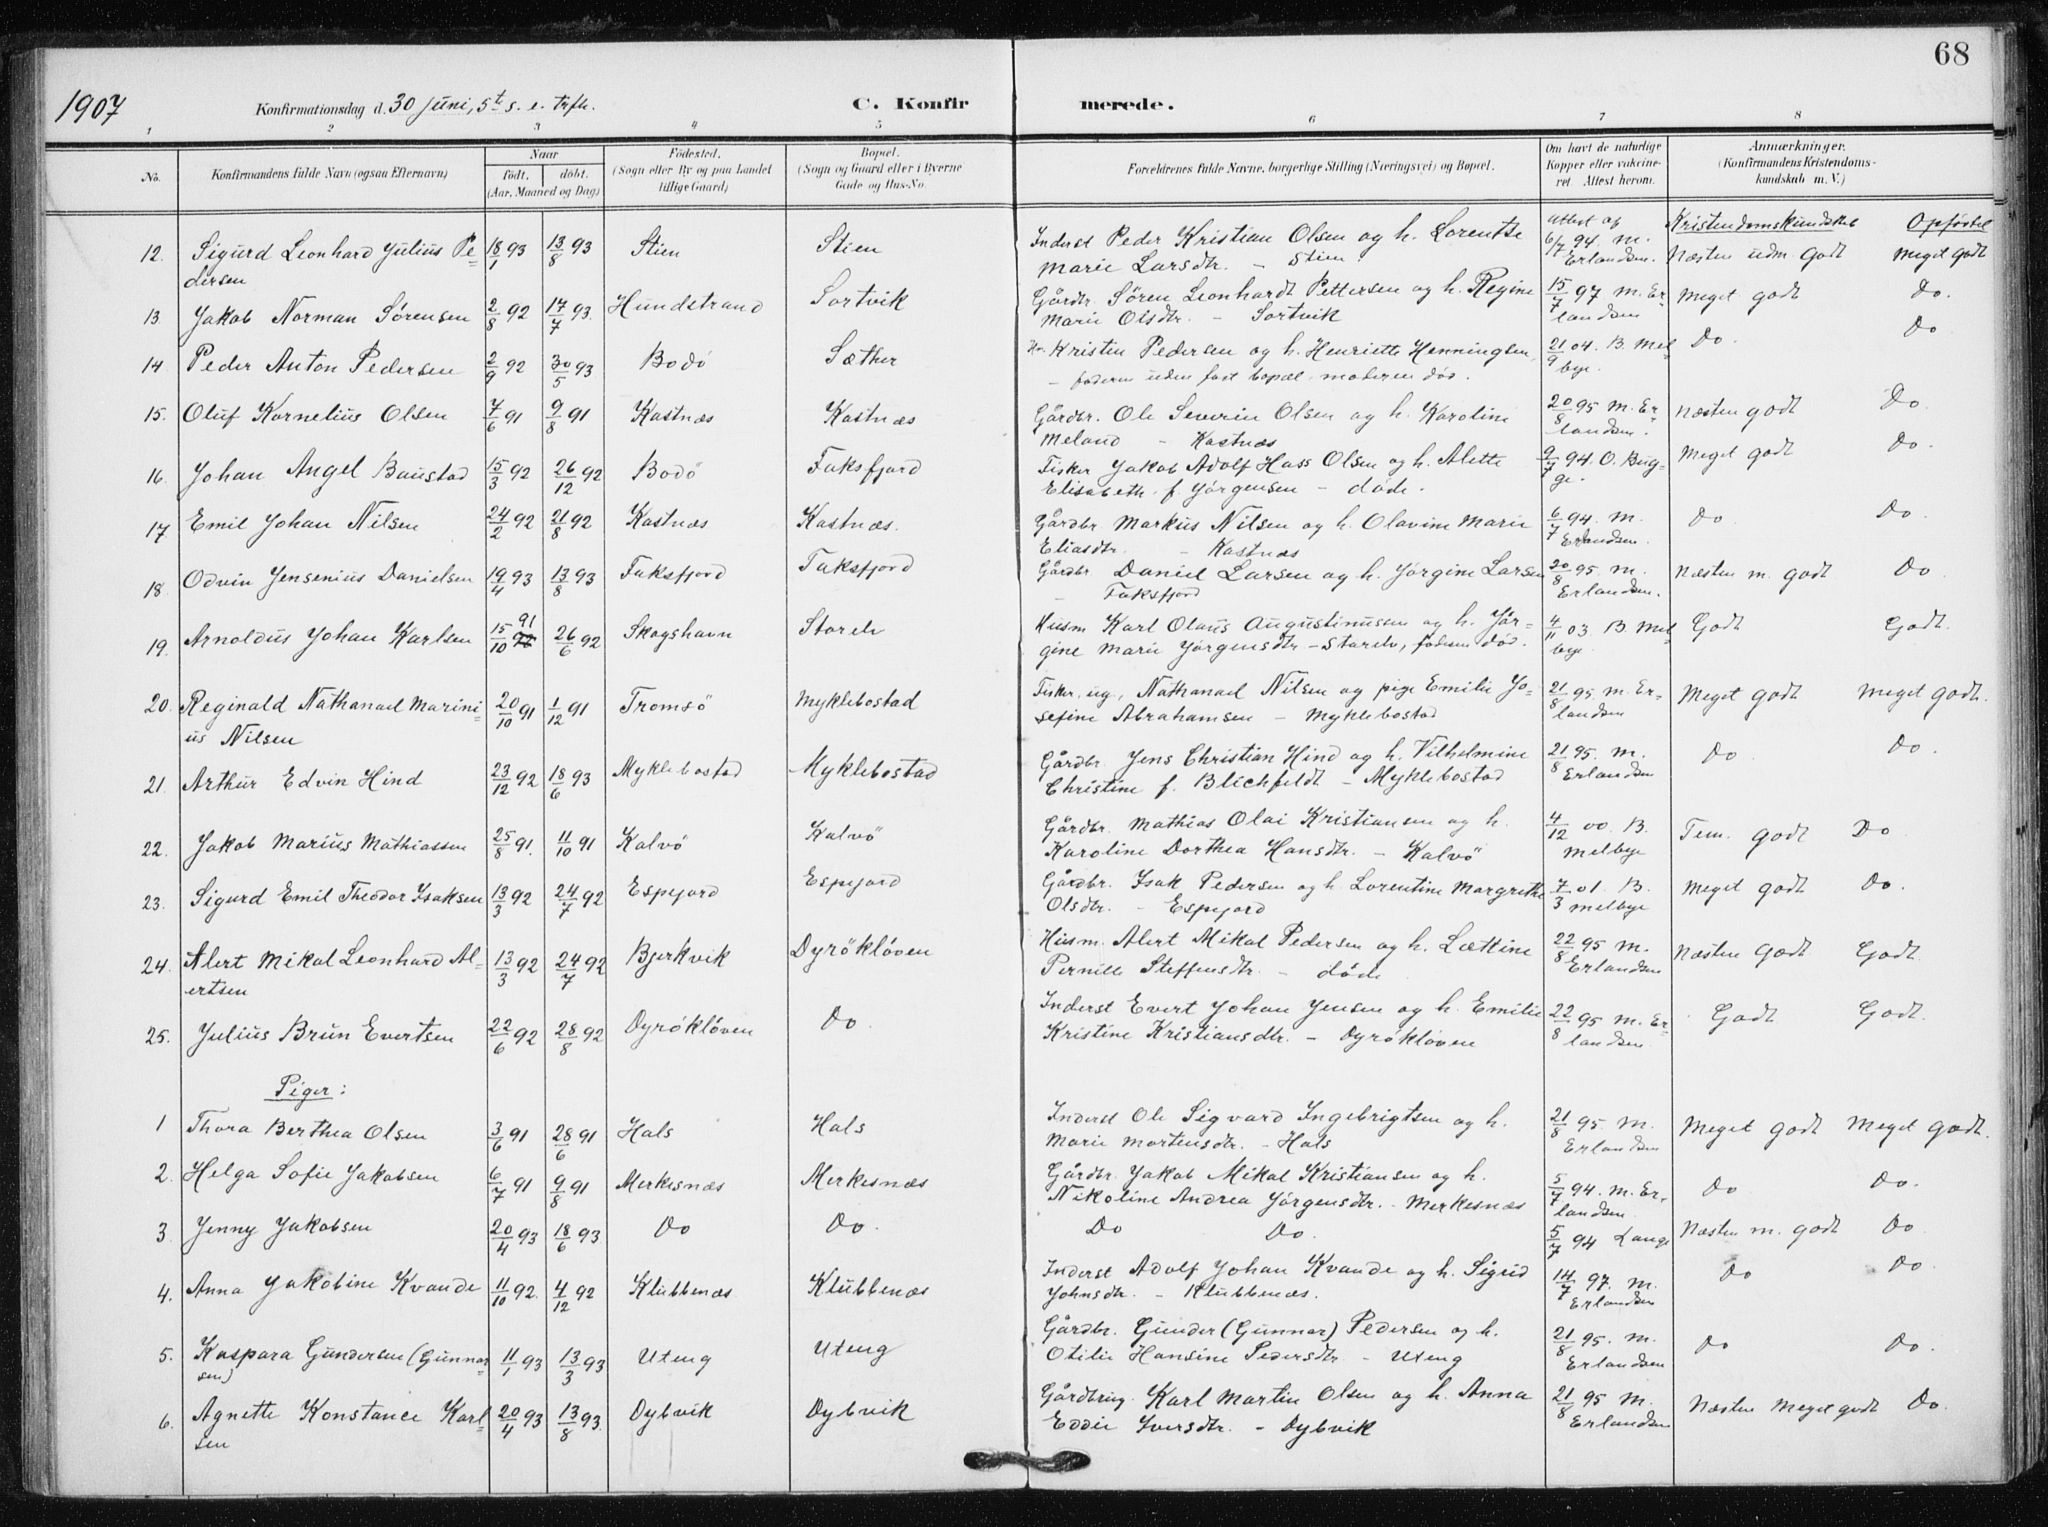 68
1907 Konfirmationsdag d. 30 Juni, 5te s. e. Trfh. C. Konfirmerede.
1 2 3 4 5 6 7 8
No. Konfirmandens fulde Navn (ogsaa Efternavn) Naar født. døbt. (Aar, Maaned og Dag) Fødested. (Sogn eller By og paa Landet tillige Gaard) Bopæl. (Sogn og Gaard eller i Byerne Gade og Hus-No. Forældrenes fulde Navne, borgerlige Stilling (Næringsvei) og Bopæl. Om havt de naturlige Kopper eller vaccineret Attest herom. Anmærkninger. (Konfirmandens Kristendomskundskab m. V.)
Kristendomskundskab Opførsel
12. Sigurd Leonhard Julius Pe= 18/1 93 13/8 93 Stien Stien Inderst Peder Kristian Olsen og h. Lorentse Attest af 6/7 94. M. Næsten udm. godt Meget godt
dersen Marie Larsdtr. - Stien. Erlandsen.
13. Jakob Norman Sørensen 2/8 92 17/7 93. Hundstrand Sortvik Gårdbr. Søren Leonhardt Pettersen og h. Regine 15/7 97 M. Er= Meget godt Do.
Marie Olsdtr. - Sortvik landsen
14 Peder Anton Pedersen 2/9 92 30/5 93 Bodö Sæther Kristen Pedersen og h. Henriette Henningsen, 21/9 04. B. Mel Do. Do
- faderen uden fast bopæl - moderen død. bye.
15. Oluf Kornelius Olsen 7/6 91 9/8 91 Kastnæs Kastnæs Gårdbr. Ole Severin Olsen og h. Karoline 20/8 95 M. Er= Næsten godt Do
Meland - Kastnæs landsen.
16. Johan Angel Baustad 15/3 92 26/12 92 Bodö Faksfjord Fisker Jakob Adolf Hass Olsen og h. Alette 9/7 94. O. Bug= Meget godt Do.
Elisabeth f. Jörgensen - döde. ge.
17 Emil Johan Nilsen 24/2 92 21/8 92 Kastnæs Kastnæs. Gårdbr Markus Nilsen og h. Olavine Marie 6/7 94. M. Do Do.
Eliasdtr. - Kastnæs Erlandsen.
18. Odvin Jensenius Danielsen 19/4 93 13/8 93 Faksfjord Faksfjord Gårdbr Daniel Larsen og h. Jörgine Larsen 20/8 95. M. Næsten m. godt Do
- Faksfjord Erlandsen.
19. Arnoldus Johan Karlsen 15/10 91 26/6 92 Skogshavn Storelv Husm Karl Olaus Augustinusen og h. Jör= 4/11 03 B. Mel Godt Godt.
gine Marie Jørgensdtr - Storelv, faderen død. bye
20. Reginald Nathanael Marini= 20/10 91 1/12 91 Tromsö Myklebostad Fisker, ug., Nathanael Nilsen og pige Emilie Jo= 21/8 95. M. Er= Meget godt Meget godt.
us Nilsen sefine Abrahamsen - Myklebostad landsen
21. Arthur Edvin Hind 23/12 92 18/6 93 Myklebostad Myklebostad Gårdbr. Jens Christian Hind og h. Vilhelmine 21/8 95. M. Do Do.
Christine f. Blichfeldt - Myklebostad Erlandsen
22. Jakob Marius Mathiassen 25/8 91. 11/10 91 Kalvö Kalvö Gårdbr. Mathias Olai Kristiansen og h. 4/12 00. B. Tem. godt Do
Karoline Dorthea Hansdtr. - Kalvö Melbye
23. Sigurd Emil Theodor Isaksen 13/3 92 24/7 92 Espejord Espejord Gårdbr. Isak Pedersen og h. Lorentine Margrethe 7/3 01. B. Meget godt Do.
Olsdtr. - Espejord Melbye
24. Alert Mikal Leonhard Al= 13/3 92 24/7 92 Bjerkvik Dyröklöven Husm. Alert Mikal Pedersen og h. Lættine 22/8 95 M. Næsten godt Godt.
ertsen Pernille Steffensdtr. - döde Erlandsen
25. Julius Brun Evertsen 22/6 92 28/8 92 Dyröklöven Do. Inderst Evert Johan Jensen og h. Emilie 22/8 95 M. Er= Godt Godt.
Kristine Kristiansdtr. - Dyröklöven landsen.
Piger:
1 Thora Berthea Olsen 3/6 91 28/6 91 Hals Hals Inderst Ole Sigvard Ingebrigtsen og h. 21/8 95. M. Meget godt Meget godt.
Marie Mortensdtr. - Hals Erlandsen
2. Helga Sofie Jakobsen 6/7 91 9/8 91 Merkesnæs Merkesnæs Gårdbr. Jakob Mikal Kristiansen og h. 5/7 94. M. Er= Do Do.
Nikoline Andrea Jørgensdtr. - Merkesnæs landsen
3. Jenny Jakobsen 20/4 93 18/6 93 Do Do. Do Do. 5/7 94 Lange Næsten m. godt Do
4. Anna Jakobine Kvande 11/10 92. 4/12 92 Klubbenæs Klubbenæs Inderst Adolf Johan Kvande og h. Sigrid 14/7 97. M. Do Do.
Johnsdtr. - Klubbenæs. Erlandsen
5. Kaspara Gundersen (Gunnar 11/1 93 13/3 93 Uteng Uteng Gårdbr. Gunder (Gunnar) Pedersen og h. 21/8 95. M. Do Do.
sen) Otilie Hansine Pedersdtr - Uteng Erlandsen
6. Agnette Konstance Karl= 20/4 93 13/8 93. Dybvik Dybvik Gårdbrug. Karl Martin Olsen og h. Anna 21/8 95 M. Næsten meget godt Do.
sen Eddie Iversdtr. - Dybvik Erlandsen